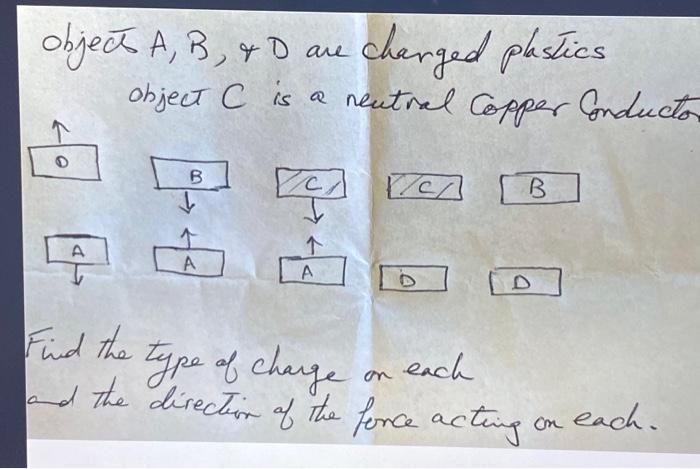 objects A, B, & D are charged plastics
object C is a neutral Copper Conductor
D B C C B
A A A D D
Find the type of charge on each
and the direction of the force acting on each.